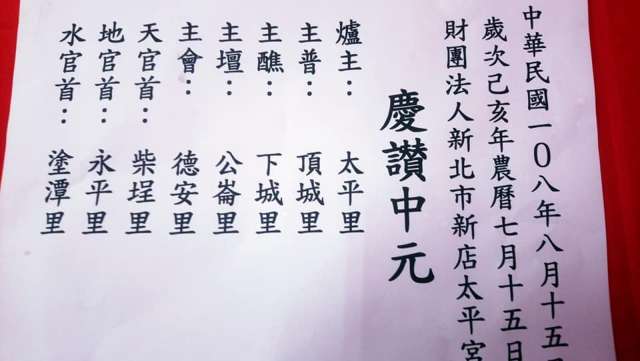 中華民國一0八年八月十五日
歲次己亥年農曆七月十五日
財團法人新北市新店太平宮
慶讚中元
爐主：太平里
主普：頂城里
主醮：下城里
主壇：公崙里
主會：德安里
天官首：柴埕里
地官首：永平里
水官首：塗潭里